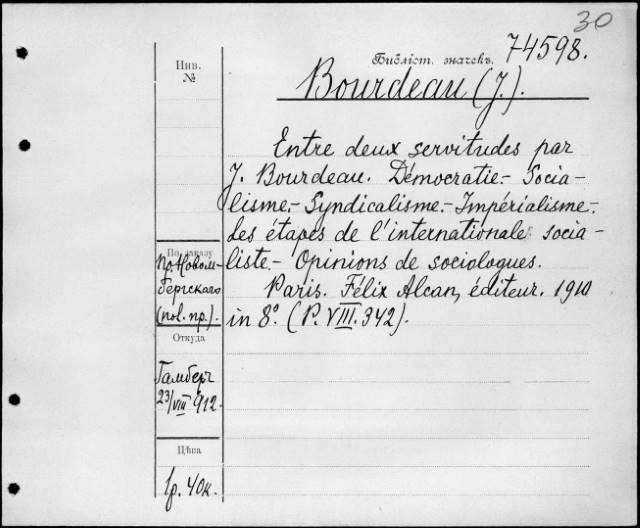 30
Инв.
№
Библіот. значекъ. 74598.
Bourdeau (J.).
Entre deux servitudes par
J. Bourdeau. Démocratie.- Socia-
lisme.- Syndicalisme.- Impérialisme.-
Les étapes de l'internationale socia-
liste.- Opinions de sociologues.
Paris. Félix Alcan, éditeur. 1910
in 8°. (P. VIII. 342).
По заказу
пр. Новом-
бергскаго
(пол. пр.).
Откуда
Гамберг
23/VIII 912.
Цѣна
1р. 40к.